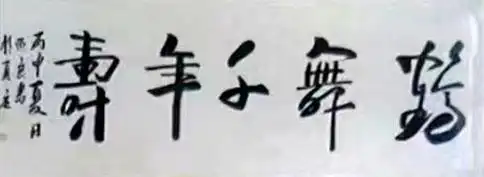 鹤舞千年寿
丙申夏月